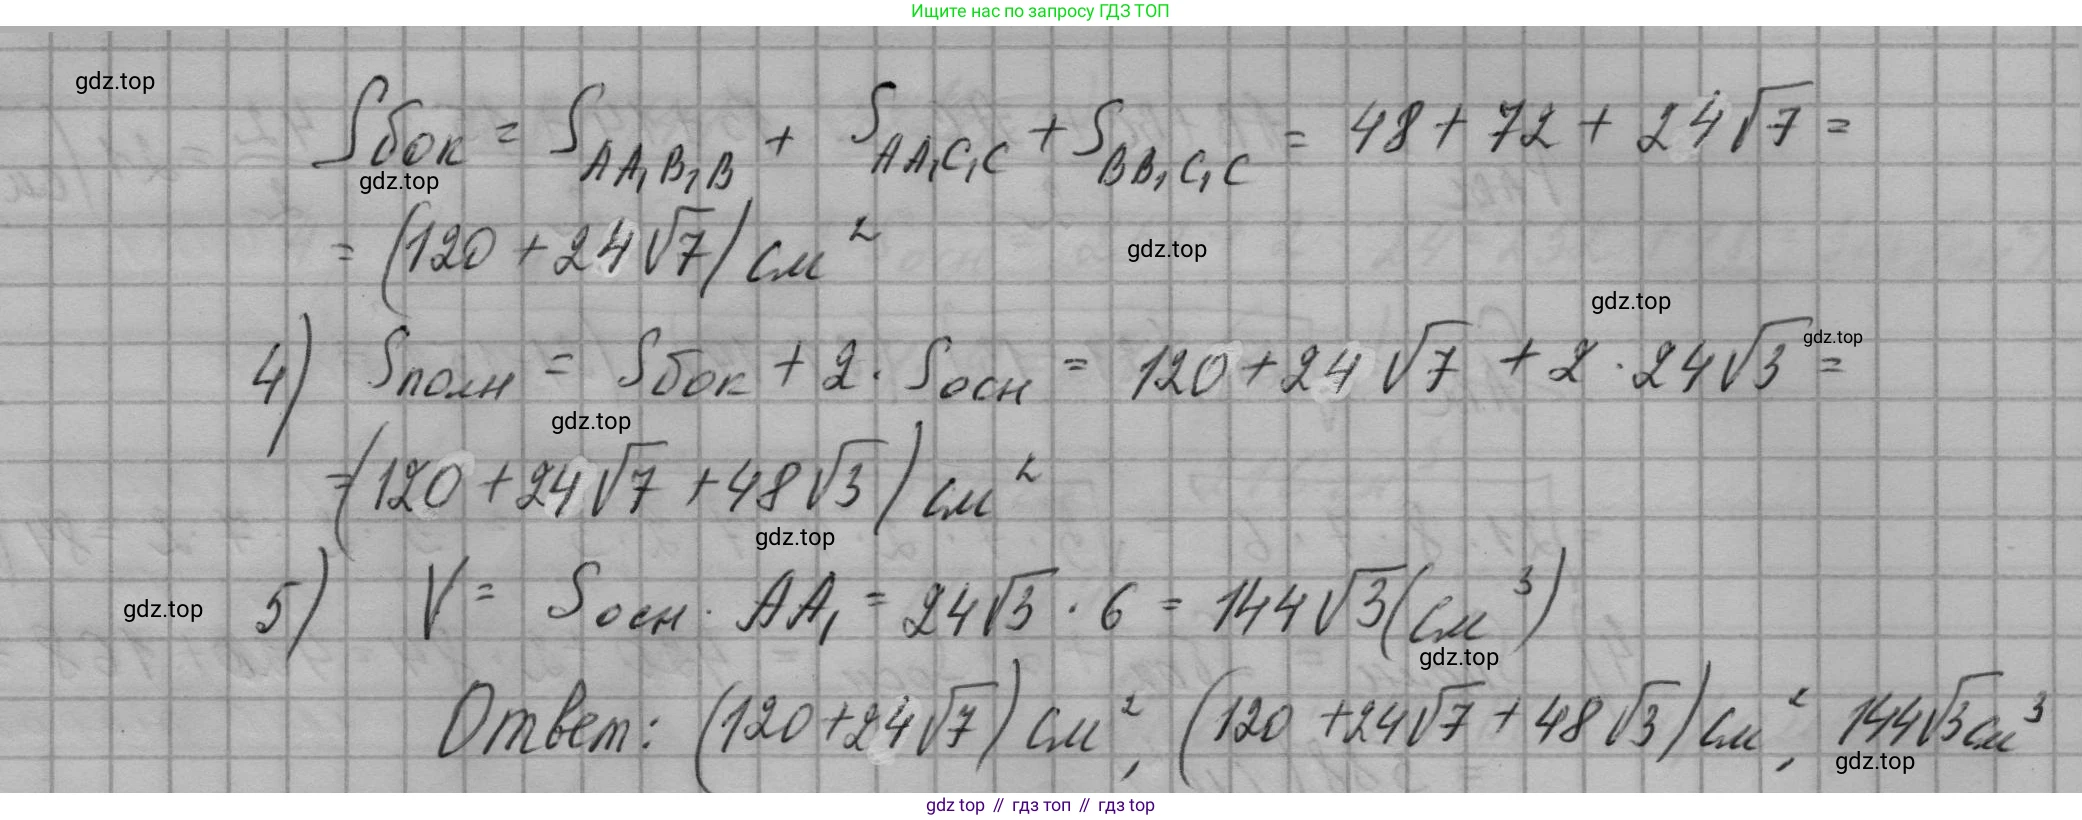 Ищите нас по запросу ГДЗ ТОП
gdz.top
Sбок = S_AA₁B₁B + S_AA₁C₁C + S_BB₁C₁C = 48 + 72 + 24√7 =
gdz.top
= (120 + 24√7) см²
gdz.top
gdz.top
4) Sполн = Sбок + 2 · Sосн = 120 + 24√7 + 2 · 24√3 =
gdz.top
gdz.top
= (120 + 24√7 + 48√3) см²
gdz.top
5) V = Sосн · AA₁ = 24√3 · 6 = 144√3 (см³)
gdz.top
gdz.top
Ответ: (120 + 24√7) см², (120 + 24√7 + 48√3) см², 144√3 см³
gdz.top
gdz top // гдз топ // гдз top